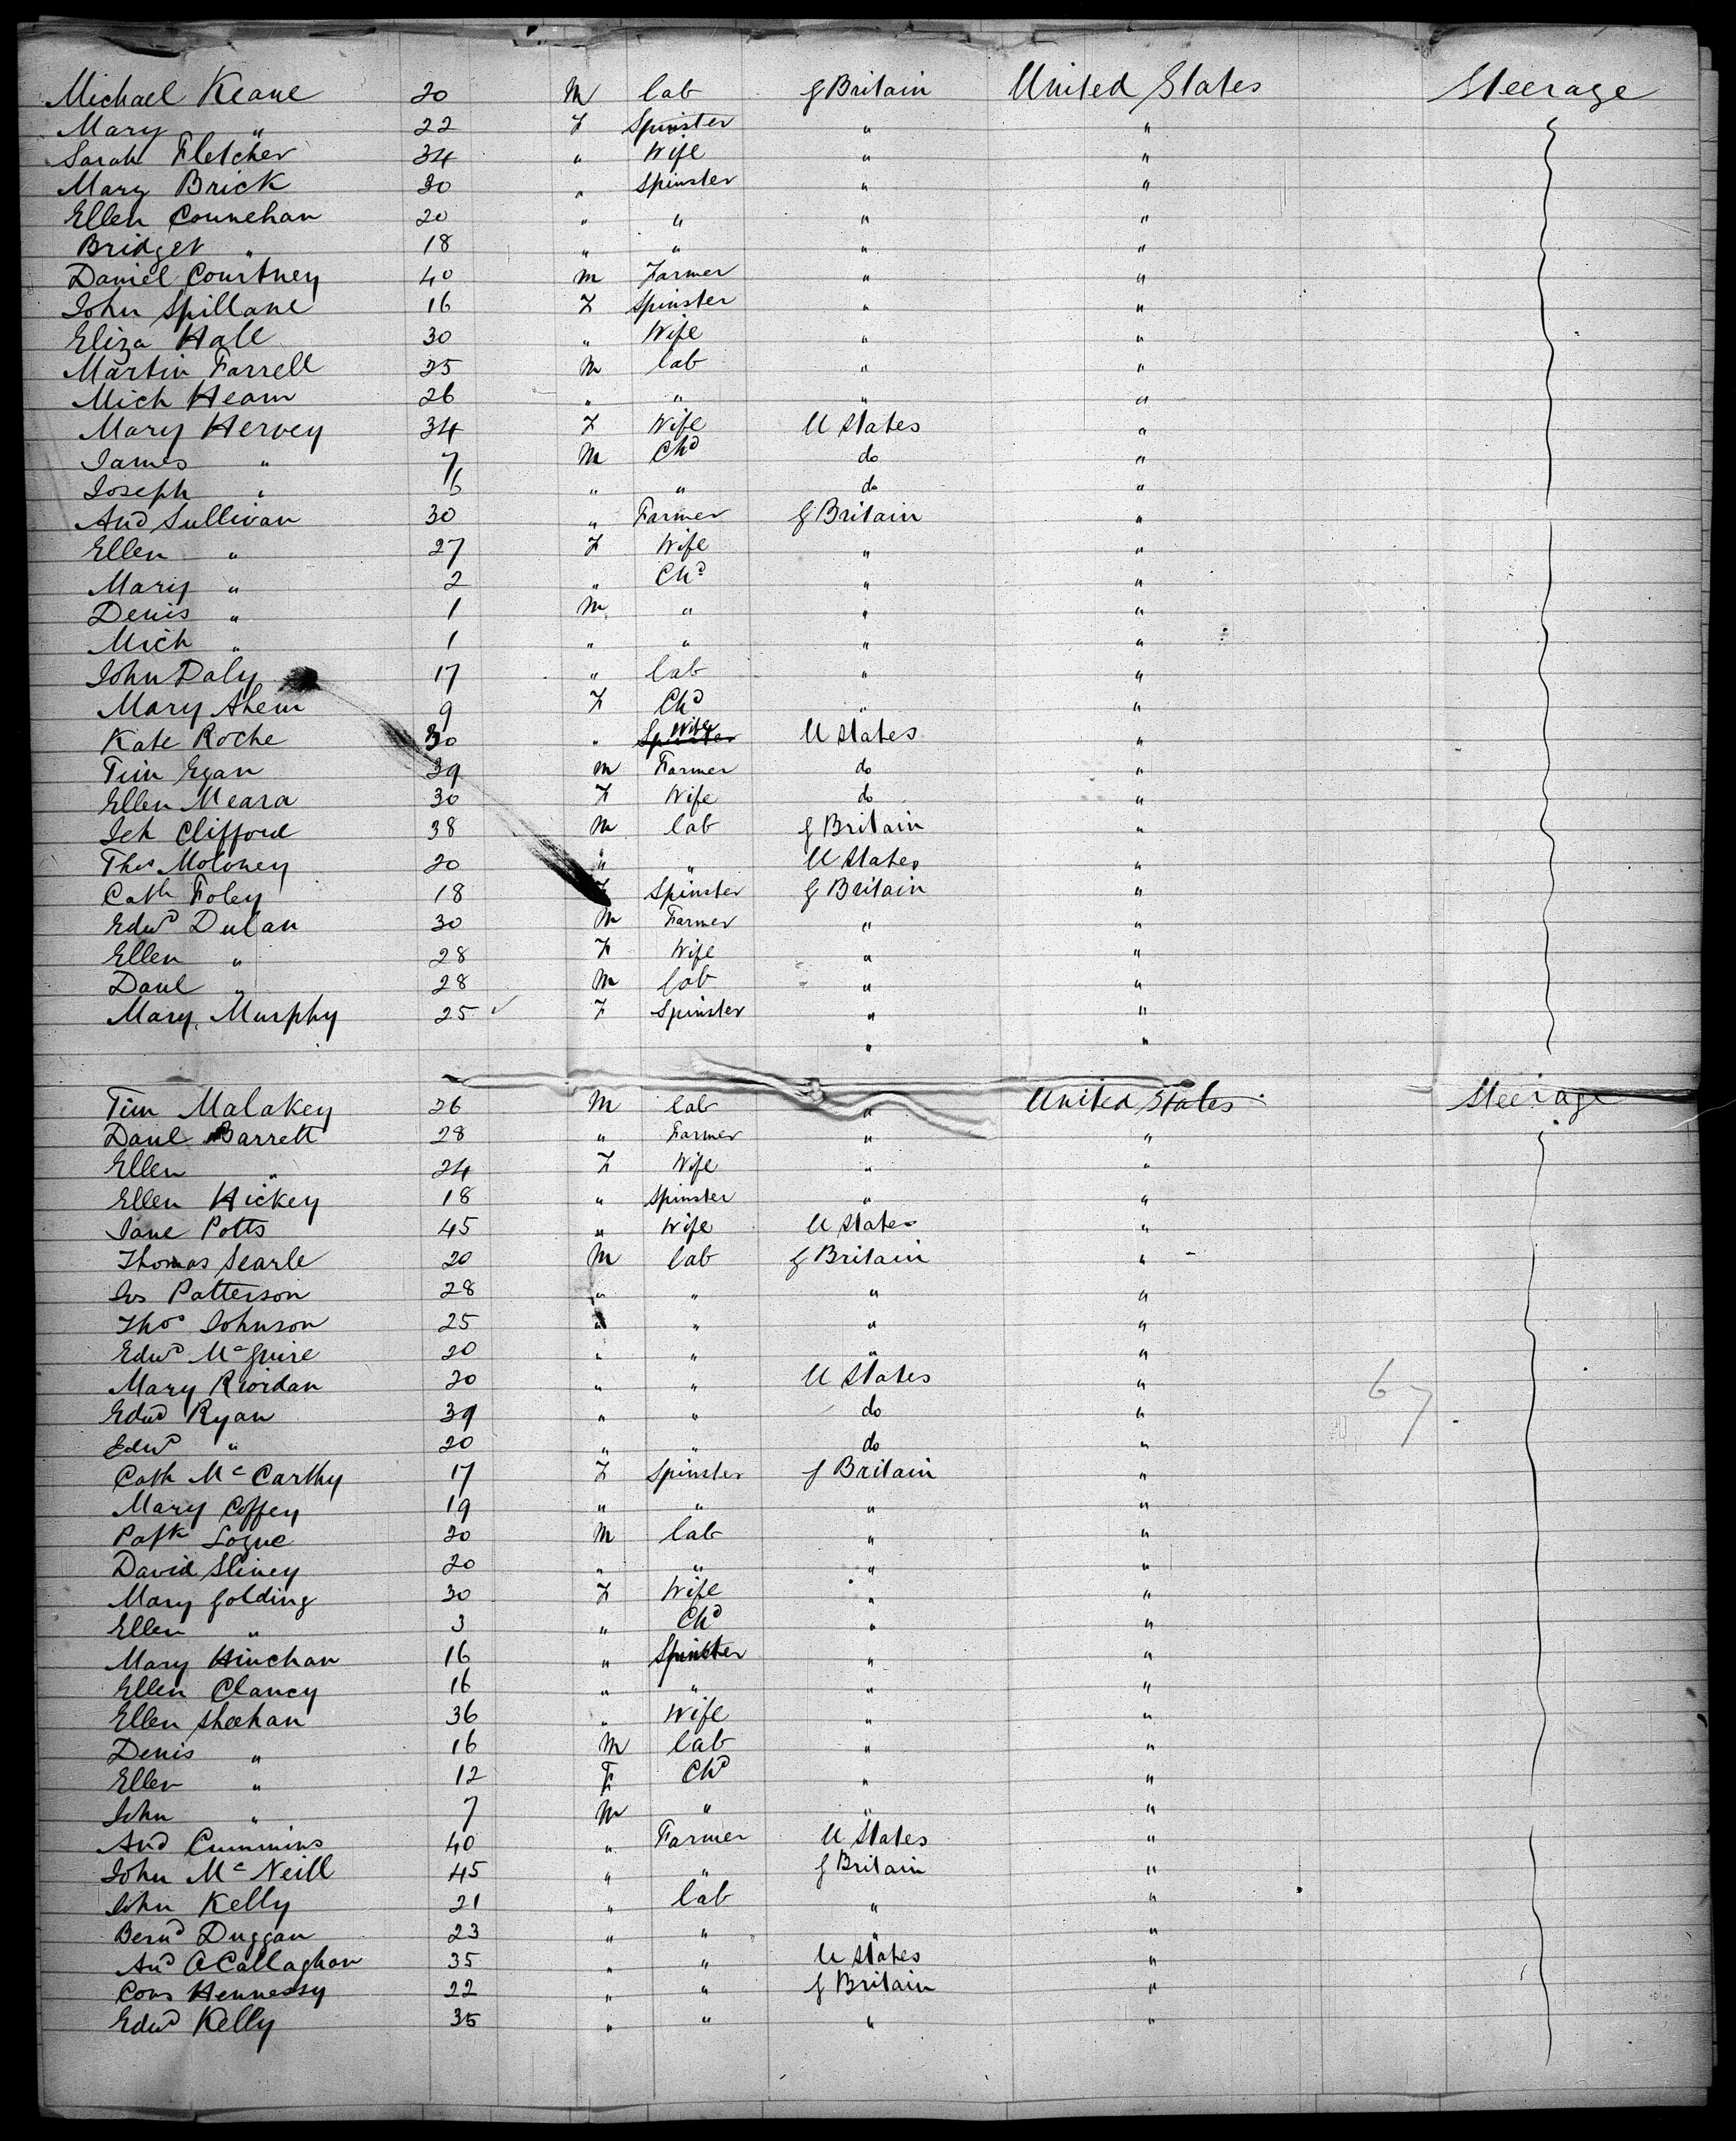 Michael Keane 20 M lab G Britain United States Steerage
Mary " 22 F Spinster " "
Sarah Fletcher 34 " Wife " "
Mary Brick 20 " Spinster " "
Ellen Counehan 20 " " " "
Bridget " 18 " " " "
Daniel Courtney 40 M Farmer " "
John Spillane 16 F Spinster " "
Eliza Hall 30 " Wife " "
Martin Farrell 25 M lab " "
Mich Hearn 26 " " " "
Mary Hervey 34 F Wife U States "
James " 7 M Chd do "
Joseph " 6 " " do "
And Sullivan 30 " Farmer G Britain "
Ellen " 27 F Wife " "
Mary " 2 " Chd " "
Denis " 1 M " " "
Mich " 1 " " " "
John Daly 17 " lab " "
Mary Ahern 9 F Chd " "
Kate Roche 30 " Wife U States "
Tim Egan 39 M Farmer do "
Ellen Meara 30 F Wife do "
Jeh Clifford 38 M lab G Britain "
Thos Moloney 20 " " U States "
Cath Foley 18 F Spinster G Britain "
Edwd Dulan 30 M Farmer " "
Ellen " 28 F Wife " "
Danl " 28 M lab " "
Mary Murphy 25 F Spinster " "
" "
Tim Malakey 26 M lab " United States Steerage
Danl Barrett 28 " Farmer " "
Ellen " 24 F Wife " "
Ellen Hickey 18 " Spinster " "
Jane Potts 45 " Wife U States "
Thomas Searle 20 M lab G Britain "
Jas Patterson 28 " " " "
Thos Johnson 25 " " " "
Edwd McGuire 20 " " " "
Mary Riordan 20 " " U States "
Edwd Ryan 39 " " do " 67
Edwd " 20 " " do "
Cath McCarthy 17 F Spinster G Britain "
Mary Coffey 19 " " " "
Patk Logue 20 M lab " "
David Sliney 20 " " " "
Mary Golding 30 F Wife " "
Ellen " 3 " Chd " "
Mary Hinchan 16 " Spinster " "
Ellen Clancy 16 " " " "
Ellen Sheehan 36 " Wife " "
Denis " 16 M lab " "
Ellen " 12 F Chd " "
John " 7 M " " "
And Cummins 40 " Farmer U States "
John McNeill 45 " " G Britain "
John Kelly 21 " lab " "
Bernd Duggan 23 " " " "
And OCallaghan 35 " " U States "
Cons Hennessy 22 " " G Britain "
Edwd Kelly 35 " " " "